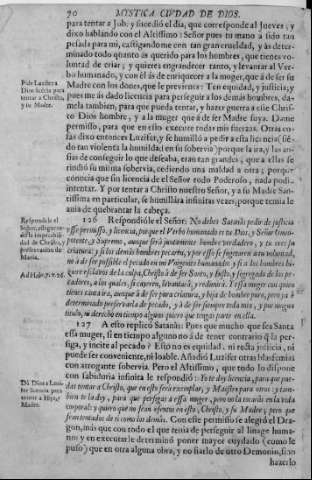 70 MYSTICA CIVDAD DE DIOS.
para tentar a Job: y sucedió el dia, que corresponde al Jueves, y
dixo hablando con el Altissimo: Señor pues tu mano a sido tan
pesada para mi, castigandome con tan gran crueldad, y às deter-
minado todo quanto às querido para los hombres, que tienes vo-
luntad de criar; y quieres engrandecer tanto, y levantar al Ver-
bo humanado, y con él às de enriquecer a la muger, que à de ser su
Madre con los dones, que le previenes: Ten equidad, y justicia, y
pues me às dado licencia para perseguir a los demás hombres, da-
mela tambien, para que pueda tentar, y hazer guerra a este Chris-
to Dios hombre, y a la muger que à de ser Madre suya. Dame
permisso, para que en esto execute todas mis fuerzas. Otras co-
sas dixo entonces Luzifer, y se humilló a pedir esta licencia (sié-
do tan violenta la humildad en su sobervia) porque la ira, y las an-
sias de conseguir lo que deseaba, eran tan grandes, que a ellas se
rindió su misma sobervia, cediendo una maldad a otra; porque
conocia que sin licencia de el Señor todo Poderoso, nada podia
intentar. Y por tentar a Christo nuestro Señor, y a su Madre San-
tissima en particular, se humillàra infinitas vezes, porque temia le
avia de quebrantar la cabeça.
Pide Luzifer a
Dios licēcia para
tentar a Christo,
y su Madre.
126 Respondióle el Señor: No debes Satanàs pedir de justicia
esse permisso, y licencia, porque el Verbo humanado es tu Dios, y Señor Omni-
potente, y Supremo, aunque serà juntamente hombre verdadero, y tu eres su
criatura: y si los demás hombres pecaren, y por esso se sugetaren a tu voluntad,
no à de ser possible el pecado en mi Unigenito humanado: y si a los hombres hi-
ziere esclavos de la culpa, Christo à de ser Santo, y justo, y segregado de los pe-
cadores, a los quales, si cayeren, levantarà, y redimirà. Y essa muger con quien
tienes tanta ira, aunque à de ser pura criatura, y hija de hombre puro, pero ya è
determinado preservarla de pecado, y à de ser siempre toda mia, y por ningun
titulo, ni derecho en tiempo alguno quiero que tengas parte en ella.
Respondele el
Ad Hebr. 7. v. 26.
127 A esto replicó Satanàs: Pues que mucho que sea Santa
essa muger, si en tiempo alguno no à de tener contrario q̃ la per-
siga, y incite al pecado? Esto no es equidad, ni recta justicia, ni
puede ser conveniente, ni loable. Añadió Luzifer otras blasfemias
con arrogante sobervia. Pero el Altissimo, que todo lo dispone
con sabiduria infinita le respondió: Yo te doy licencia, para que pue-
das tentar a Christo, que en esto serà exemplar, y Maestro para otros: y tam-
bien te la doy, para que persigas a essa muger, pero no la tocaràs en la vida
corporal: y quiero que no sean esentos en esto, Christo, y su Madre; pero que
sean tentados de ti como los demàs. Con este permisso se alegró el Dra-
gon, màs que con todo el que tenia de perseguir al linage huma-
no: y en executarle determinó poner mayor cuydado (como le
puso) que en otra alguna obra, y no fiarlo de otro Demonio, sino
hazerlo
Dà Dios a Luzi-
fer licencia para
tentar a Hijo, y
Madre.